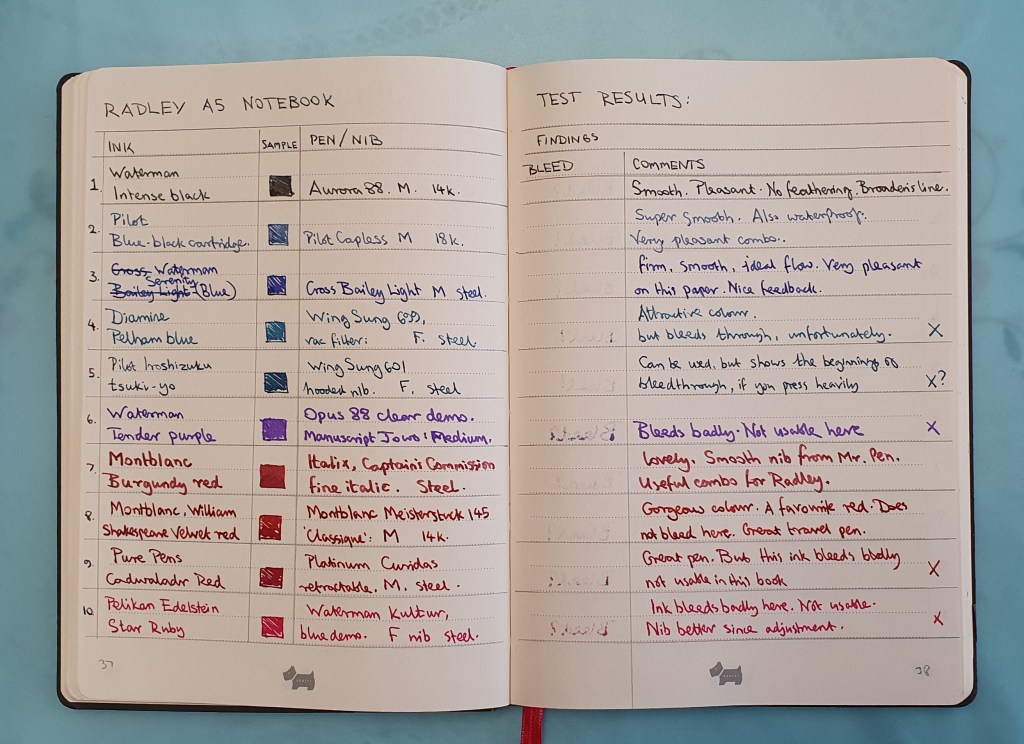 RADLEY A5 NOTEBOOK
INK SAMPLE PEN/NIB
1. Waterman
Intense black Aurora 88. M. 14k.
2. Pilot
Blue-black cartridge. Pilot Capless M 18k.
3. Cross Waterman
Serenity
Bailey Light (Blue) Cross Bailey Light M steel.
4. Diamine Wing Sung 699,
Pelham blue vac filter: F. steel
5. Pilot Iroshizuku Wing Sung 601
tsuki-yo hooded nib. F. steel
6. Waterman Opus 88 clear demo.
Tender purple Manuscript Jowo: Medium.
7. Montblanc Italix, Captain's Commission
Burgundy red fine italic. Steel.
8. Montblanc, William Montblanc Meisterstuck 145
Shakespeare Velvet red 'Classique': M 14k.
9. Pure Pens Platinum Curidas
Cadwaladr Red retractable. M. steel.
10. Pelikan Edelstein Waterman Kultur,
Star Ruby blue demo. F nib steel.
37
RADLEY
TEST RESULTS:
FINDINGS
BLEED COMMENTS
Smooth. Pleasant. No feathering. Broader is line.
Super smooth. Also waterproof.
Very pleasant combo..
firm, smooth, ideal flow. Very pleasant
on this paper. Nice feedback.
Attractive colour.
but bleeds through, unfortunately. X
Can be used, but shows the beginnings of
bleedthrough, if you press heavily X?
Bleeds badly. Not usable here X
Lovely. Smooth nib from Mr. Pen.
Useful combo for Radley.
Gorgeous colour. A favorite red. Does
not bleed here. Great travel pen.
Great pen. But this ink bleeds badly
not usable in this book X
Ink bleeds badly here. Not usable.
Nib better since adjustment. X
38
RADLEY